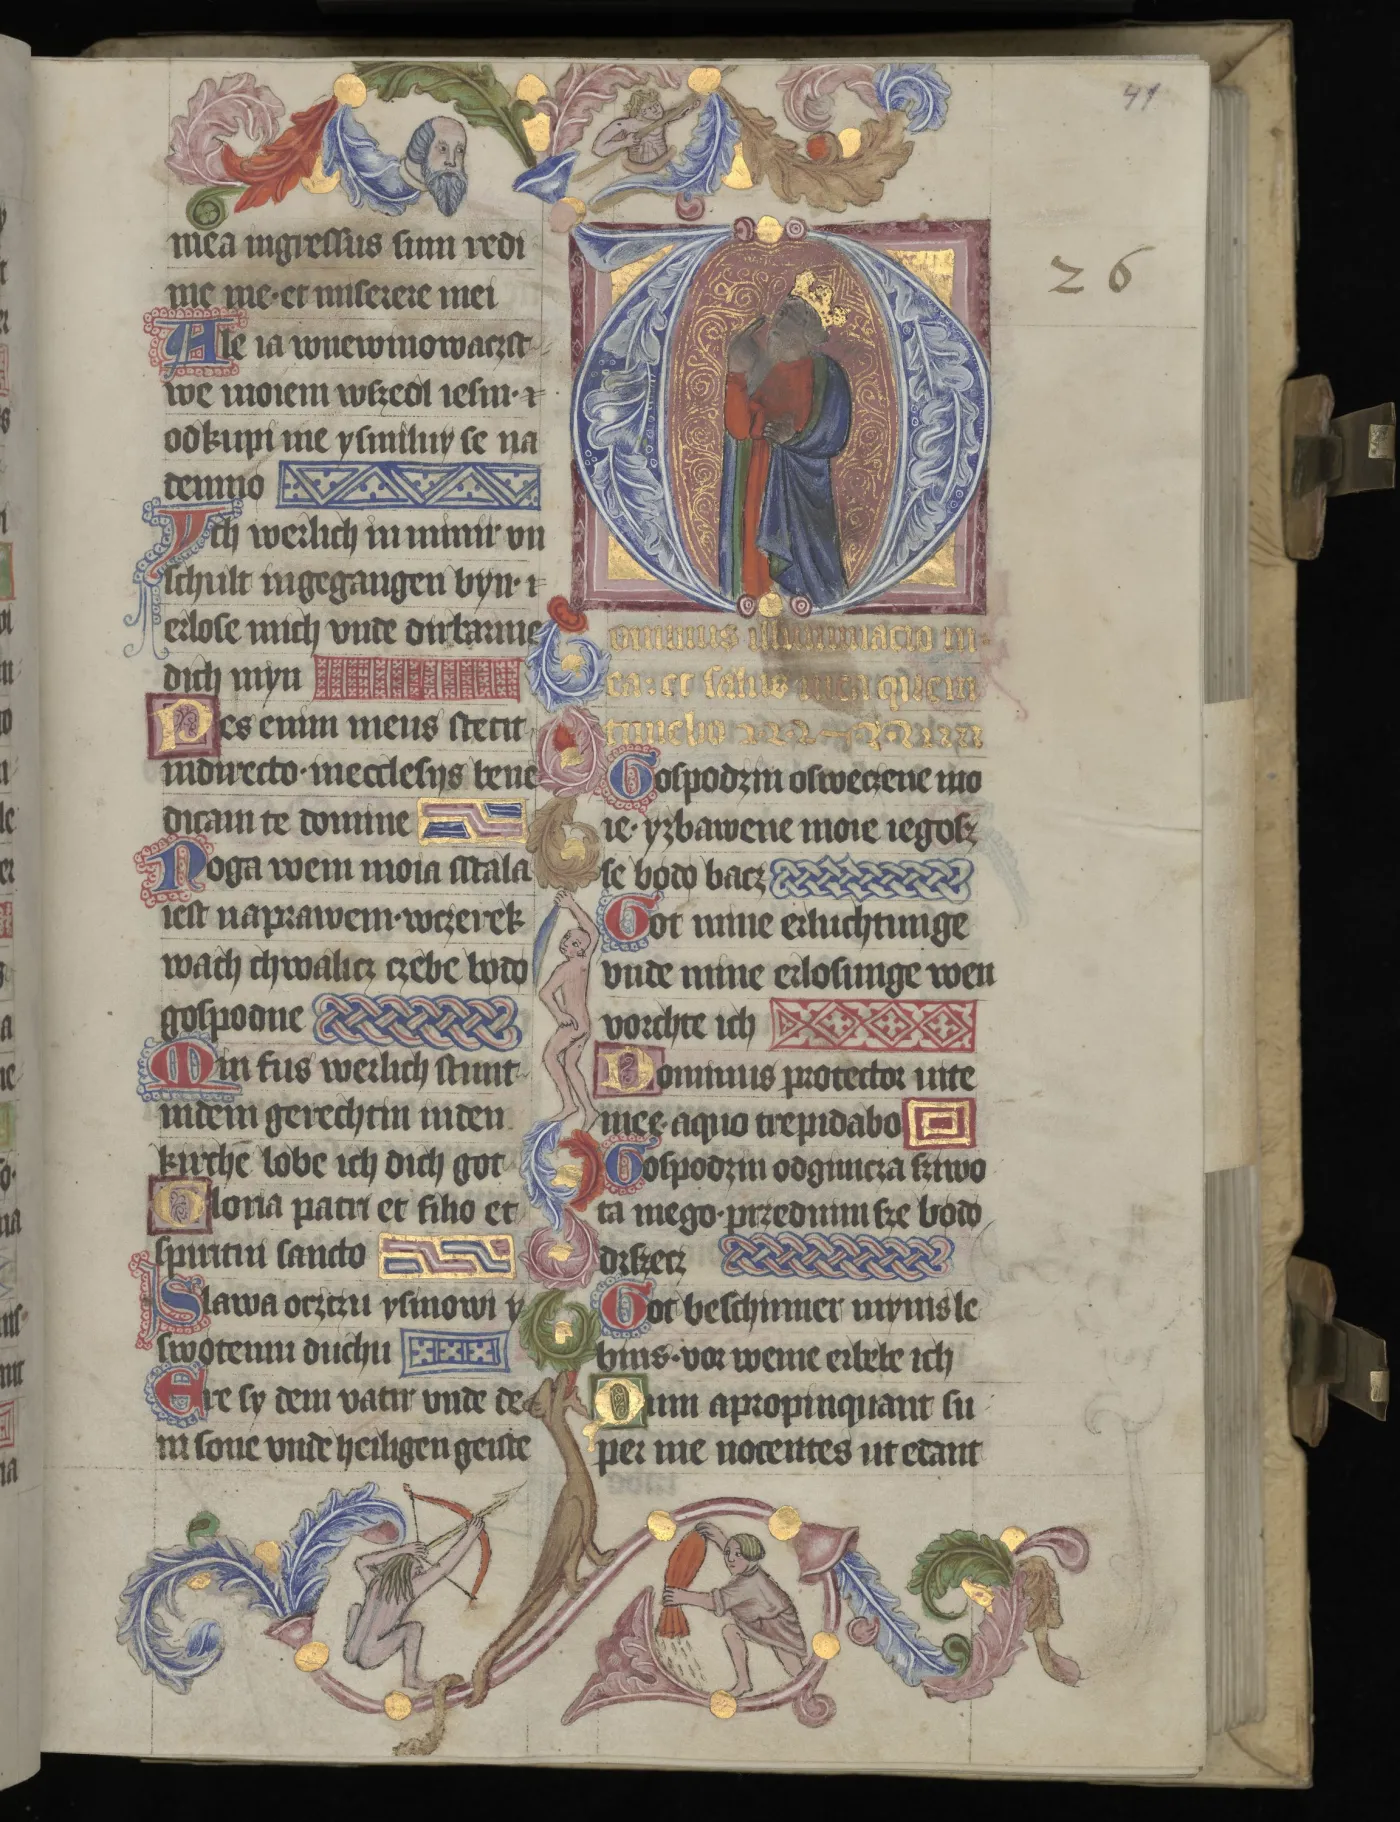 41
26
mea ingressus sum redi
me me·et miserere mei
Ale ia wnewinowaczst
we moiem wszedl iesm·i
odkupi me ysmiluy se na
demno
Ich werlich in minir un
schult ingegangen byn·i
erlose mich vnde dirbarme
dich myn
Pes enim meus stetit
indirecto·inecclesijs bene
dicam te domine
Noga wem moia stala
iest naprawem·wczerek
wach chwalicz czebe bodo
gospodne
Min fus werlich stunt
indem gerechtin inden
kirchē lobe ich dich got
Gloria patri et filio et
spiritui sancto
Slawa oczczu ysinowi y
swotemu duchu
Ere sy dem vatir vnde de
m sone vnde heiligen geiste
Dominus illuminacio m
ea: et salus mea quem
timebo
Gospodzin oswecene mo
ie·yzbawene moie iegosz
se bodo bacz
Got mine erluchtunge
vnde mine erlosunge wen
vorchte ich
Dominus protector uite
mee·aquo trepidabo
Gospodzin odgimcza sziwo
ta mego·przednimsze bodo
drszecz
Got beschirmer mynis le
bins·vor weme erbebe ich
Dum apropinquant su
per me nocentes ut edant